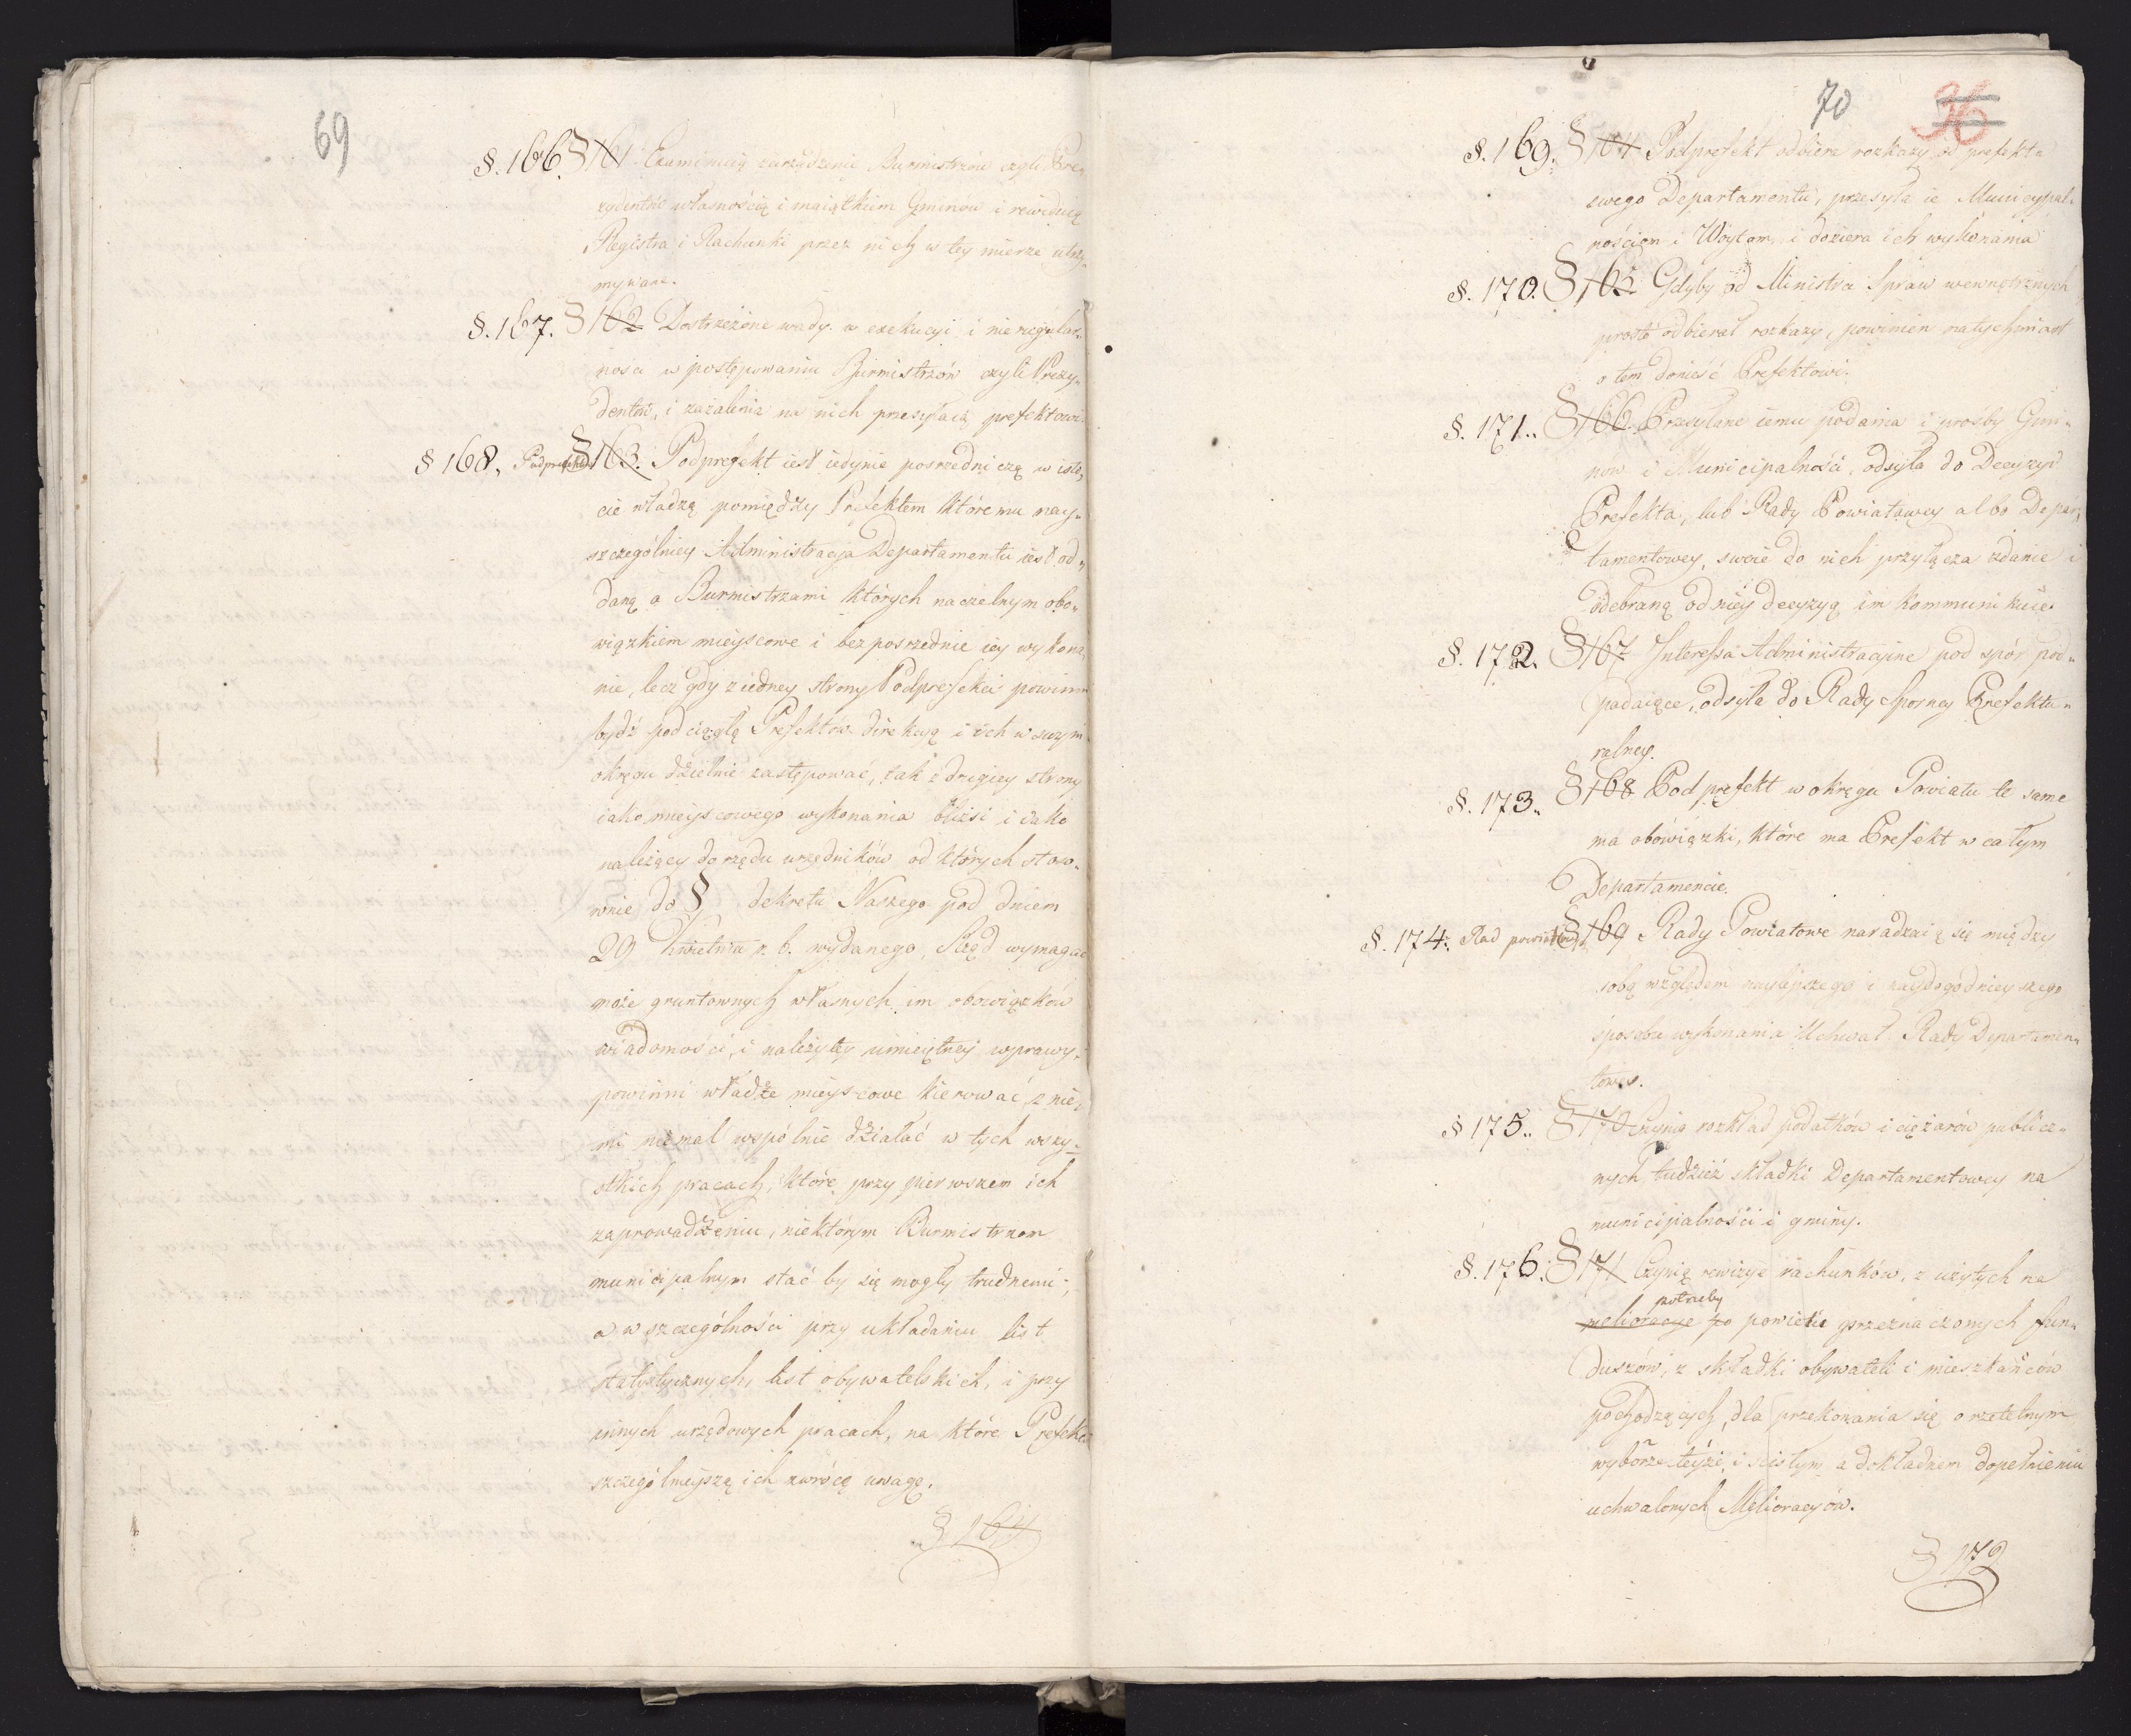 69
§. 166. § 161. Examinuią zarządzenie Burmistrzów czyli Pre„
zydentów własnością i maiątkiem Gminów i rewiduią
Registra i Rachunki przez nich w tey mierze utrzy„
mywane.
§. 167. § 162 Dostrzeżone wady w exekucyi i nieregular„
ności w postępowaniu Burmistrzów czyli Prezy„
dentów, i zażalenia na nich przesyłaią prefektowi.
§ 168. Podprefekt § 163. Podprefekt iest iedynie posrzedniczą w isto„
cie władzą pomiędzy Prefektem któremu nay„
szczególniey Administracja Departamentu iest od„
daną a Burmistrzami których naczelnym obo„
wiązkiem mieyscowe i bezposrzednie iey wykona„
nie, lecz gdy z iedney strony Podprefekci powinni
bydź pod ciągłą Prefektów direkcyą i ich w swym
okręgu dzielnie zastępować, tak z drugiey strony
iako mieyscowego wykonania bliżsi i iako
należący do rzędu urzędników od których stoso„
wnie do § dekretu Naszego pod dniem
29 Kwietnia r. b. wydanego, Rząd wymagać
może gruntownych własnych im obowiązków
wiadomości, i należytey umieiętney wprawy;
powinni władze mieyscowe kierować, z nie„
mi niemal wspólnie działać w tych wszy„
stkich pracach, które przy pierwszem ich
zaprowadzeniu, niektórym Burmistrzom
municipalnym stać by się mogły trudnemi;
a w szczególności przy układaniu list
statystycznych, list obywatelskich, i przy
innych urzędowych pracach, na które Prefekci
szczególnieyszą ich zwrócą uwagę.
§ 164
70 36
§. 169. § 164 Podprefekt odbiera rozkazy od prefekta
swego Departamentu, przesyła ie Municypal„
nościom i Woytom, i doziera ich wykonania
§. 170. § 165 Gdyby od Ministra Spraw wewnętrznych
prosto odbierał rozkazy, powinien natychmiast
o tem donieść Prefektowi.
§. 171. § 166. Przesyłane iemu podania i prośby Gmi„
nów i Municipalności, odsyła do Decyzyi
Prefekta, lub Rady Powiatowey albo Depar„
tamentowey, swoie do nich przyłącza zdanie i
odebraną od niey decyzyą im kommunikuie.
§. 172. § 167 Interessa Administracyine pod spór pod„
padaiące, odsyła do Rady Sporney Prefektu„
ralney.
§. 173. § 168 Podprefekt w okręgu Powiatu te same
ma obowiązki, które ma Prefekt w całym
Departamencie.
§. 174. Rad powiatowych § 169 Rady Powiatowe naradzaią się między
sobą względem naylepszego i naydogodnieyszego
sposobu wykonania Uchwał Rady Departamen„
towey.
§ 175. § 170 Czynią rozkład podatków i ciężarów publicz„
nych, tudzież składki Departamentowey na
municipalności i gminy.
§. 176. § 171 Czynią rewizye rachunków, z użytych na
potrzeby
melioracye po powiecie przeznaczonych Fun„
duszów, z składki obywateli i mieszkańców
pochodzących, dla przekonania się o rzetelnym
wyborze teyże, i ścisłym a dokładnem dopełnieniu
uchwalonych Melioracyów.
§ 172